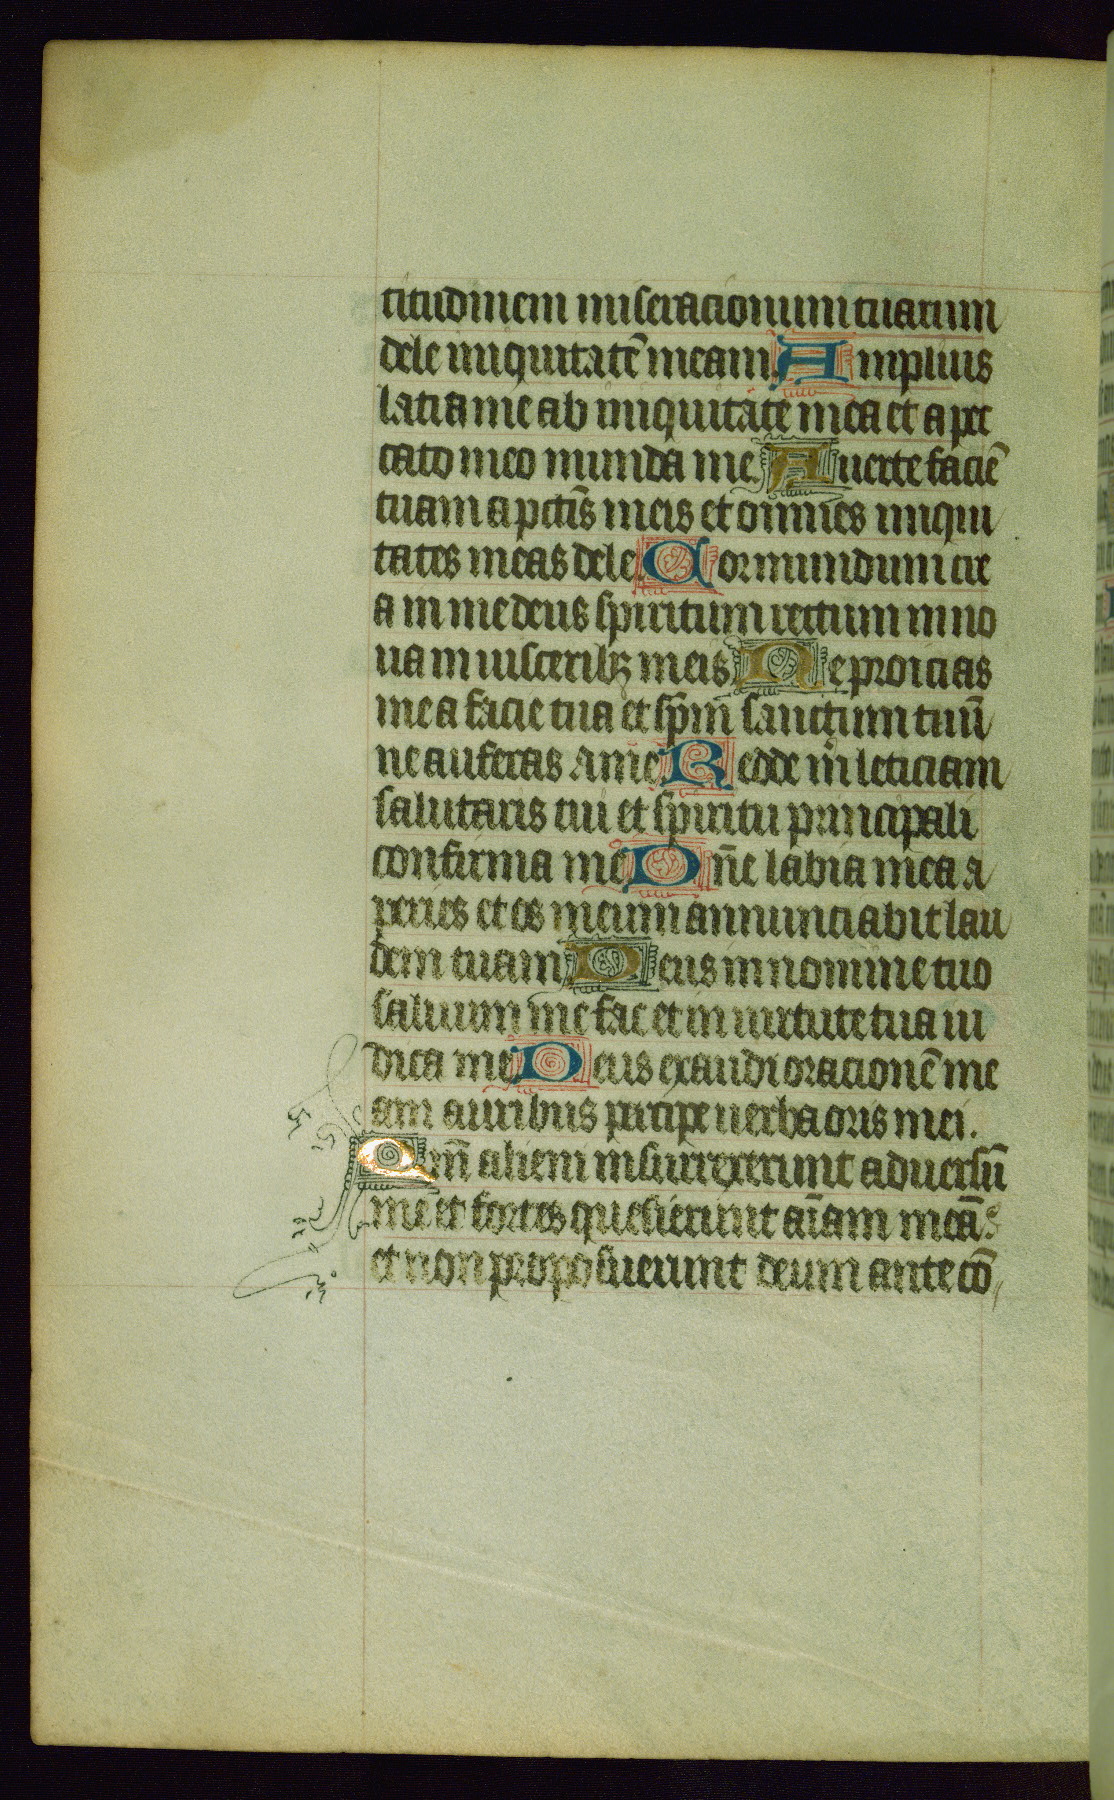 titudinem miseracionum tuarum
dele iniquitatē meam. Amplius
lavia me ab iniquitate mea et a pec
cato meo munda me. Auerte faciē
tuam a pctīs meis et omnes iniqui
tates meas dele. Cor mundum cre
a in me deus spiritum rectum inno
ua in uisceribꝫ meis. Ne proicias
me a facie tua et spm̄ sanctum tuū
ne auferas a me. Redde m̄i leticiam
salutaris tui et spiritu principali
confirma me. Dn̄e labia mea a
peries et os meum annunciabit lau
dem tuam. Deus in nomine tuo
saluum me fac et in uirtute tua iu
dica me. Deus exaudi oracionē me
am auribus percipe uerba oris mei.
Qm̄ alieni insurrexerunt aduersū
me et fortes quesierunt aīam meā:
et non proposuerunt deum ante cō